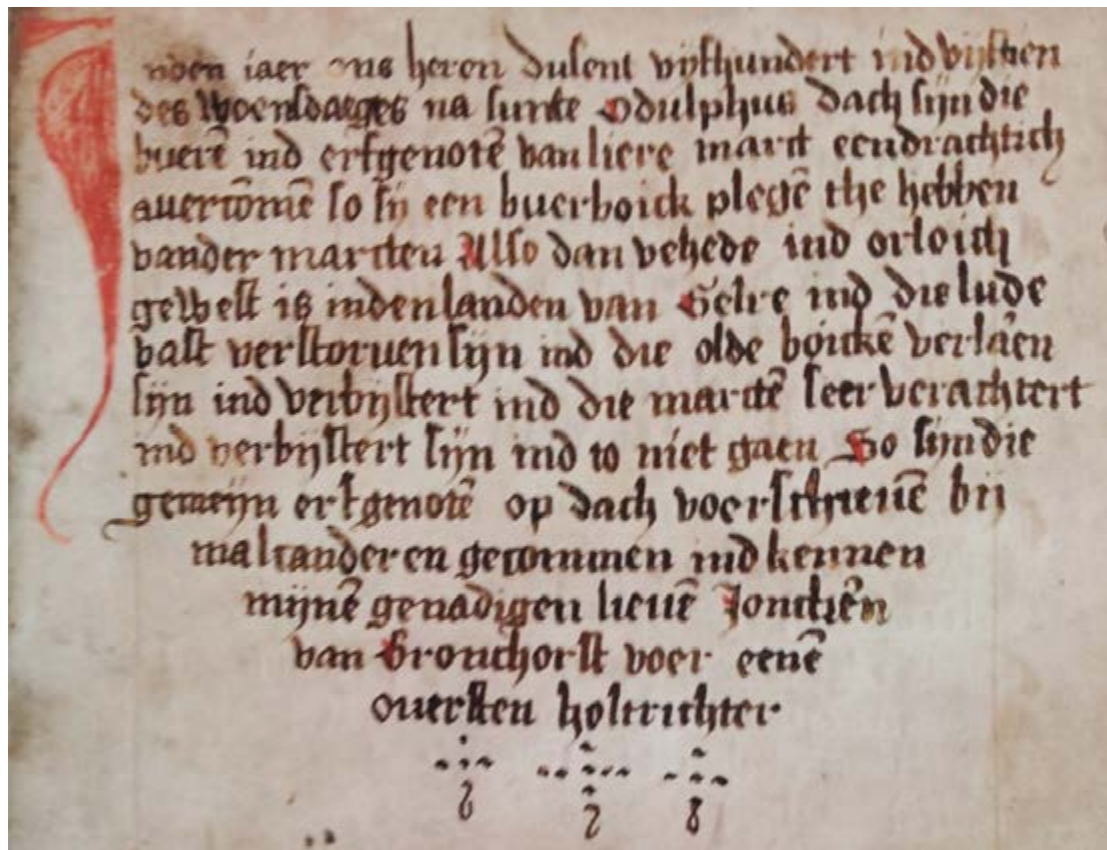 Inden iaer ons heren dusent vijfhundert ind vijftien
des Woensdaeges na sunte Odulphus dach sijn die
buerē ind erfgenotē van liere marct eendrachtich
auercōmē so sij een buerboick plegē the hebben
vander marcten Also dan vehede ind orloich
gewest is inden landen van Gelre ind die lude
vast verstoruen sijn ind die olde boickē verlaren
sijn ind verbijstert ind die marctē seer verachtert
ind verbijstert sijn ind to niet gaen So sijn die
gemeijn erfgenotē op dach voerschreuē bij
malcanderen gecommen ind kennen
mijnē genadigen lieuē Joncheren
van Bronchorst voer eenē
ouersten holtrichter